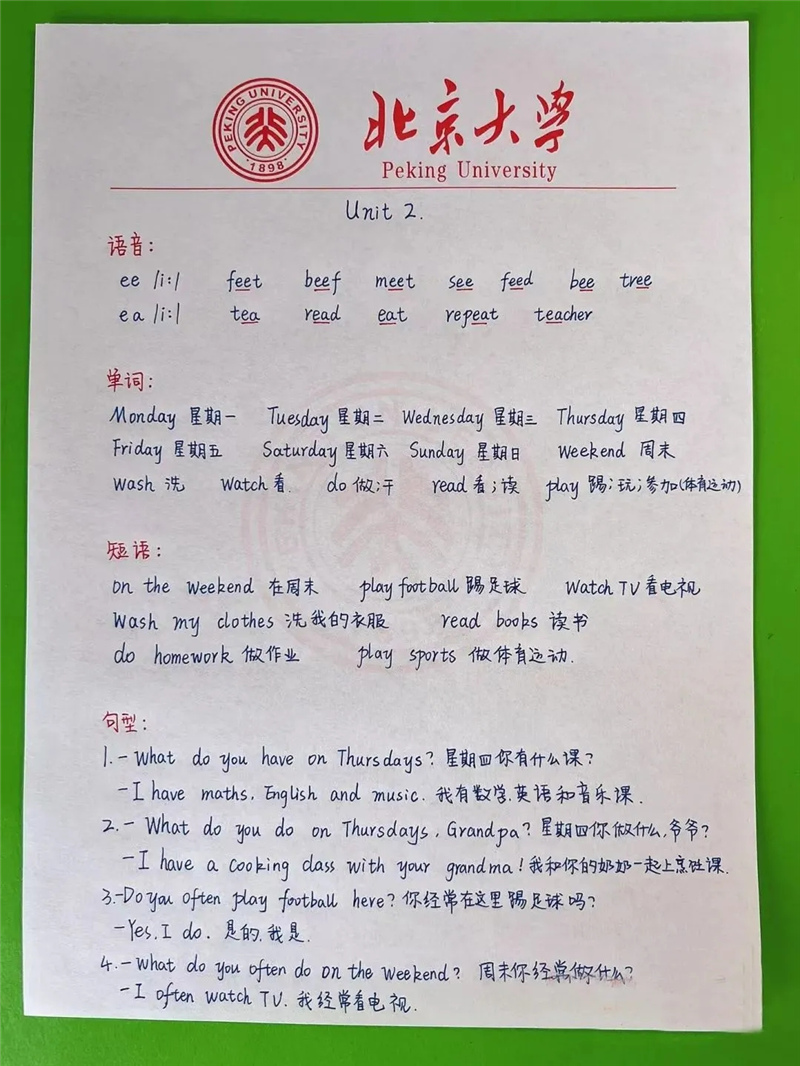 PEKING UNIVERSITY
·1898·
北京大学
Peking University
Unit 2.
语音:
ee /i:/ feet beef meet see feed bee tree
ea /i:/ tea read eat repeat teacher
单词:
Monday 星期一 Tuesday 星期二 Wednesday 星期三 Thursday 星期四
Friday 星期五 Saturday 星期六 Sunday 星期日 weekend 周末
wash 洗 watch 看. do 做;干 read 看;读 play 踢;玩;参加(体育运动)
短语:
on the weekend 在周末 play football 踢足球 watch TV 看电视
wash my clothes 洗我的衣服 read books 读书
do homework 做作业 play sports 做体育运动.
句型:
1. - What do you have on Thursdays? 星期四你有什么课?
- I have maths, English and music. 我有数学,英语和音乐课.
2. - What do you do on Thursdays, Grandpa? 星期四你做什么,爷爷?
- I have a cooking class with your grandma! 我和你的奶奶一起上烹饪课.
3. - Do you often play football here? 你经常在这里踢足球吗?
- Yes, I do. 是的,我是.
4. - What do you often do on the weekend? 周末你经常做什么?
- I often watch TV. 我经常看电视.